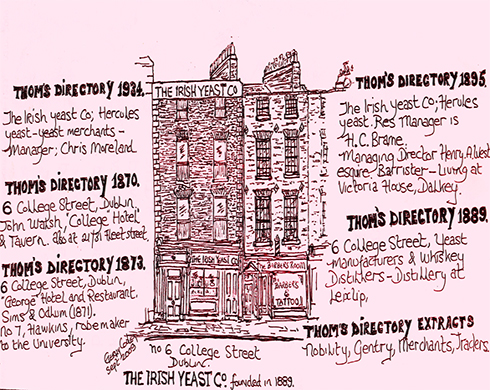 THOM'S DIRECTORY 1934.
The Irish Yeast Co; Hercules
yeast-yeast merchants -
Manager; Chris Moreland.
THOM'S DIRECTORY 1870.
6 College Street, Dublin.
John Walsh, 'College Hotel'
& Tavern. also at 21/31 fleet street.
THOM'S DIRECTORY 1873.
6 College Street, Dublin,
'George' Hotel and Restaurant,
Sims & Odlum (1871).
no 7, Hawkins, robe maker
to the University.
THE IRISH YEAST CO
THE IRISH YEAST CO
The BARBERS ROOM
BARBERS
&
TATTOO
THOM'S DIRECTORY 1895.
The Irish yeast Co; Herules
yeast. Res Manager is
H.C. Brame.
-Managing Director Henry A. West
esquire Barrister - Living at
Victoria House, Dalkey.
THOM'S DIRECTORY 1889.
6 College Street, Yeast
-manufacturers & Whiskey
Distillers - Distillery at
Leixlip,
THOM'S DIRECTORY EXTRACTS
Nobility, Gentry, Merchants, Traders.
Sept 2009
no 6 College Street
Dublin.
THE IRISH YEAST CO. founded in 1889.